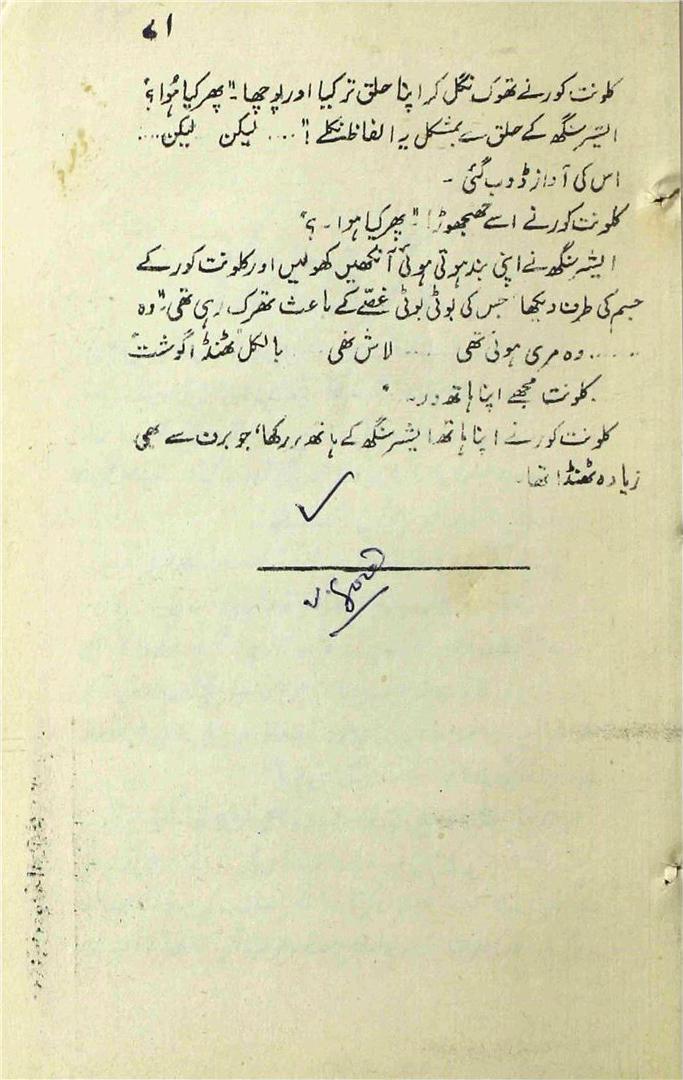 ۷۱
کلونت کور نے تھوک نگل کر اپنا حلق تر کیا اور پوچھا۔ "پھر کیا ہُوا؟"
ایشر سنگھ کے حلق سے بمشکل یہ الفاظ نکلے! ".... لیکن لیکن....
اس کی آواز ڈوب گئی ۔
کلونت کور نے اسے جھنجھوڑا۔ "پھر کیا ہوا ۔؟"
ایشر سنگھ نے اپنی بند ہوتی ہوئی آنکھیں کھولیں اور کلونت کور کے
جسم کی طرف دیکھا جس کی بوٹی بوٹی غصّے کے باعث تھرک رہی تھی۔ "وہ
...... وہ مری ہوئی تھی .... لاش تھی .... بالکل ٹھنڈا گوشت
کلونت مجھے اپنا ہاتھ دو۔ "
کلونت کور نے اپنا ہاتھ ایشر سنگھ کے ہاتھ پر رکھا، جو برف سے بھی
زیادہ ٹھنڈا تھا۔
v. good